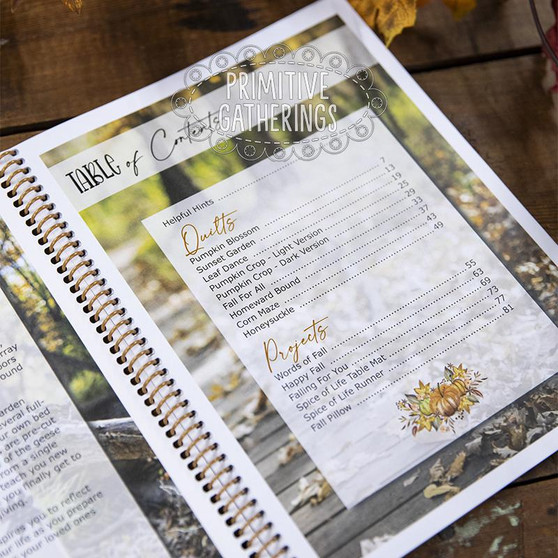 PRIMITIVE
GATHERINGS
TABLE of Contents
Helpful Hints 7
Quilts
Pumpkin Blossom 13
Sunset Garden 19
Leaf Dance
Pumpkin Crop - Light Version
Pumpkin Crop - Dark Version
Fall For All
Homeward Bound
Corn Maze
Honeysuckle
Projects
Words of Fall 55
Happy Fall 63
Falling For You 69
Spice of Life Table Mat 73
Spice of Life Runner 77
Fall Pillow 81
rray
ors
ound
arden
several full-
our own red
are pre-cut
of the geese
rom a single
teach you new
you finally get to
living.
spires you to reflect
as you prepare
our loved ones